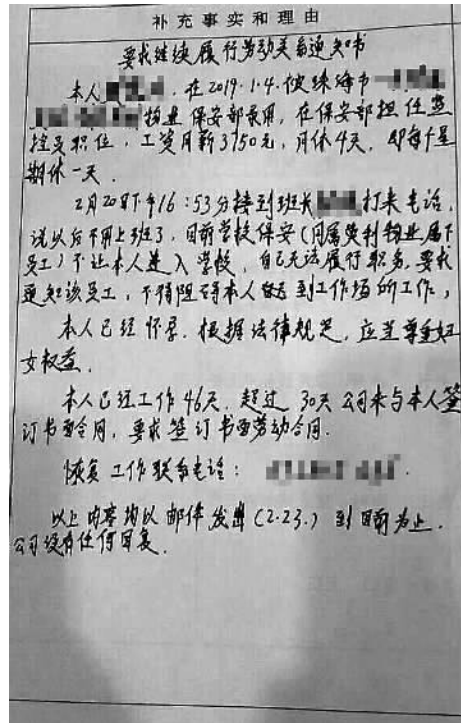 补充事实和理由
要求继续履行劳动关系通知书
本人 在2019.1.4.被珠海市
物业保安部录用,在保安部担任监
控员职位,工资月薪3750元,月休4天,即每个星
期休一天.
2月20日下午16:53分接到班长 打来电话,
说以后不用上班了,目前学校保安(同属 利物业属下
员工)不让本人进入学校,自己无法履行职务,要求
通知该员工,不得阻碍本人 到工作场所工作,
本人已经怀孕.根据法律规定,应当尊重妇
女权益.
本人已经工作46天.超过30天公司未与本人签
订书面合同,要求签订书面劳动合同.
恢复工作联系电话:
以上内容均以邮件发出(2.23.)到目前为止.
公司没有任何回复.